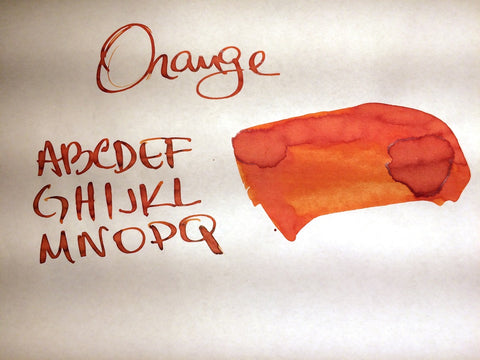 Orange
ABCDEF
GHIJKL
MNOPQ